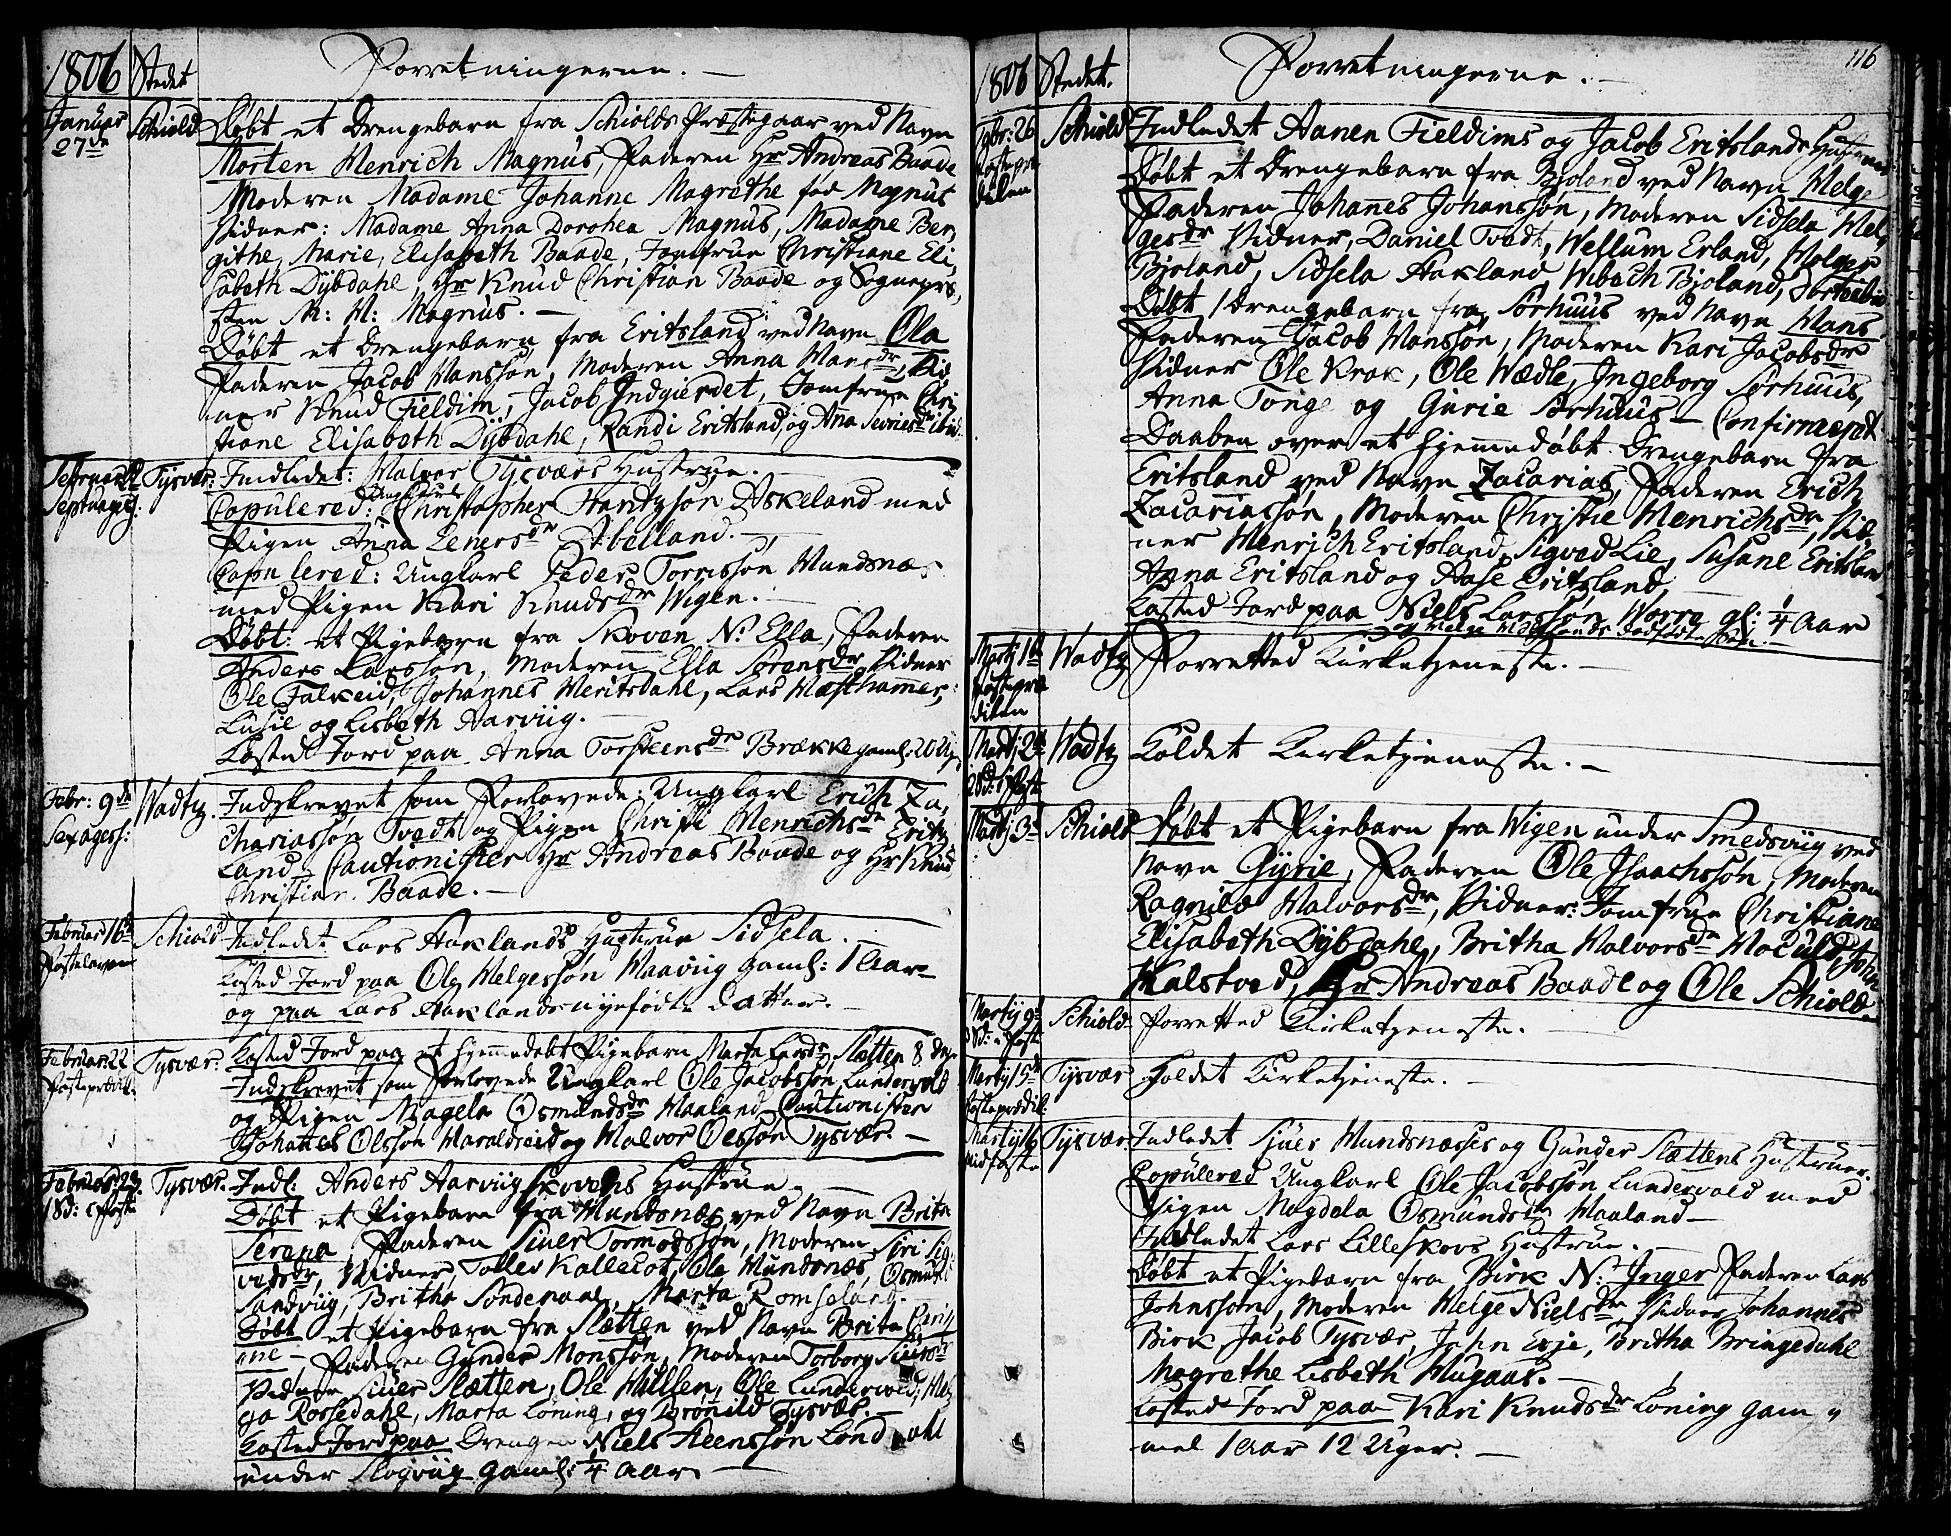 1806 Stedet Forretningerne. —
Januar Schiold Døbt et Drengebarn fra Schiolds Præstegaar ved Navn
27de Morten Henrich Magnus, Faderen Hr Andreas Baade
Moderen Madame Johanne Magrethe fød Magnus
Vidner: Madame Anna Dorohea Magnus, Madame Ber,
githe, Marie, Elisabeth Baade, Jomfrue Christiane Eli,
sabeth Dÿbdahl, Hr Knud Christian Baade og Sognepr,
sten M: H: Magnus. —
Døbt et Drengebarn fra Eritsland ved Navn Ola
Faderen Jacob Hansson, Moderen Anna Hansdr, Vid
ner Knud Fieldim, Jacob Indgierdet, Jomfrue Chri
stiane Elisabeth Dÿbdahl, Randi Eritsland, og Ana
Februar Tysvær: Indledet: Halvor Tysværs Hustrue.
Septuages: Copulered: Ungkarl Christopher Askeland med
Pigen Anna Eenersdr Abelland. —
Copulered: Ungkarl Peder Torrisson Hundsnæs
med Pigen Kari Knudsdr Wigen. —
Døbt: et Pigebarn fra Skoven N: Ella, Faderen
Anders Larsson, Moderen Ella Sørensdr Vidner
Ole Falkeid, Johannes Heritsdahl, Lars Hæsthammer,
Lusie og Lisbeth Aarviig. —
Kasted Jord paa Anna Torsteensdr Brække gaml: 20 Ug,
Febr: 9de Wadtz. Indskrevet som Forlovede: Ungkarl Erich Za,
Sexagess: chariasson Tvedt og Pigen Christi Henrichsdr Erits
land, Cautionister Hr Andreas Baade og Hr Knud
Christian Baade. —
Februar 16de Schiold Indledet Lars Haklands Hustrue Sidsela.
Fastelavn Kasted Jord paa Ole Helgesson Waaviig gaml: 1 Aar
og paa Lars Haklands nyefødte Datter. —
Februar 22 Tysvær: Kasted Jord paa et hjemedøbt Pigebarn Marta Larsdr Slætten 8 dage
Fasteprædik: Indskrevet som Forlovede Ungkarl Ole Jacobsson Lundervold
og Pigen Magela Osmundsdr Haaland Cautionister
Johannes Olsson Haraldseid og Halvor Olsson Tysvær. —
Februar 23 Tysvær. Indl: Anders Aarviig Skovens Hustrue. —
1 Sd: i faste Døbt et Pigebarn fra Hundsnæs ved Navn Brita
Serena, Faderen Siuer Tormodsson, Moderen Siri Sig,
vadsdr, Vidner, Tolles Kallecot, Ole Hundsnæs, Osmund
Sandviig, Britha Søndenaae, Marta Romseland. —
Døbt et Pigebarn fra Slætten ved Navn Brita Chri
ine — Faderen Gunder Monsson, Moderen Torborg Siuersdr
Vidner Siuer Slætten, Ole Hillsen, Ole Lundervold, Hel,
ga Rossedahl, Marta Løning, og Brønild Tysvær. —
Kasted Jord paa Drengen Niels Steensson Lond
under Slogviig gaml: 1/4 Aar —
116
1806 Stedet. Forretningerne. —
Febr: 26 Schiold Indledet Aanen Fieldims og Jacob Eritslands Hustruer
Døbt et Drengebarn fra Bjoland ved Navn Helge
Faderen Johanes Johansson, Moderen Sidsela Hel,
gesdr Vidner, Daniel Tvedt, Wellum Erland, Holger
Bjoland, Sidsela Hakland, Wibech Bjoland,
Døbt 1 Drengebarn fra Sørhuus ved Navn Hans
Faderen Jacob Hansson, Moderen Kari Jacobsdr
Vidner Ole Krok, Ole Wædle, Ingeborg Sørhuus,
Anna Tonge og Gurie Sørhuus — Confirmeret
Daaben over et hjemedøbt Drengebarn fra
Eritsland ved Navn Zacarias, Faderen Erich
Zacariasson, Moderen Christie Henrichsdr, Vid,
ner Henrich Eritsland, Sigvad Lie, Susane Eritsland
Anna Eritsland og Aase Eritsland,
Kasted Jord paa Niels Larsson Worre gl: 1/4 Aar
Martj 1te Wadtz Forretted Kirketjeneste. —
fastepræ
diken
Martj 2de Wadtz Holdet Kirketjeneste. —
2 Sd: i fast
Martj 3de Schiold Døbt et Pigebarn fra Wigen under Smedsviig ved
Navn Gÿrie, Faderen Ole Isaachsson, Moderen
Ragnild Halvorsdr, Vidner: Jomfrue Christiane
Elisabeth Dÿbdahl, Britha Halvorsdr, John
Halstved, Hr Andreas Baade og Ole Schiold. —
Martij 9de Schiold Forretted Kirketjeneste. —
Martij 15de Tysvær Holdet Kirketjeneste. —
fasteprædik:
Martij 16 Tysvær. Indledet Siuer Hundsnæsses og Gunder Slættens Hustruer.
midfaste Copulered Ungkarl Ole Jacobsson Lundervold med
Pigen Magdela Osmundsdr Haaland —
Indledet Lars Lilleskovs Hustrue. —
Døbt et Pigebarn fra Birk N: Inger Faderen Lars
Johnsson, Moderen Helge Nielsdr Vidner Johannes
Birk Jacob Tysvær, John Exje, Britha Bringedahl
Magrethe Lisbeth Hugaas. —
Kasted Jord paa Kari Knudsdr Løning gam,
mel 1 Aar 12 Uger. —